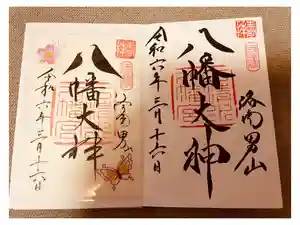 洛南男山
八幡大神
令和六年三月十六日
洛南男山
八幡大神
令和六年三月十六日